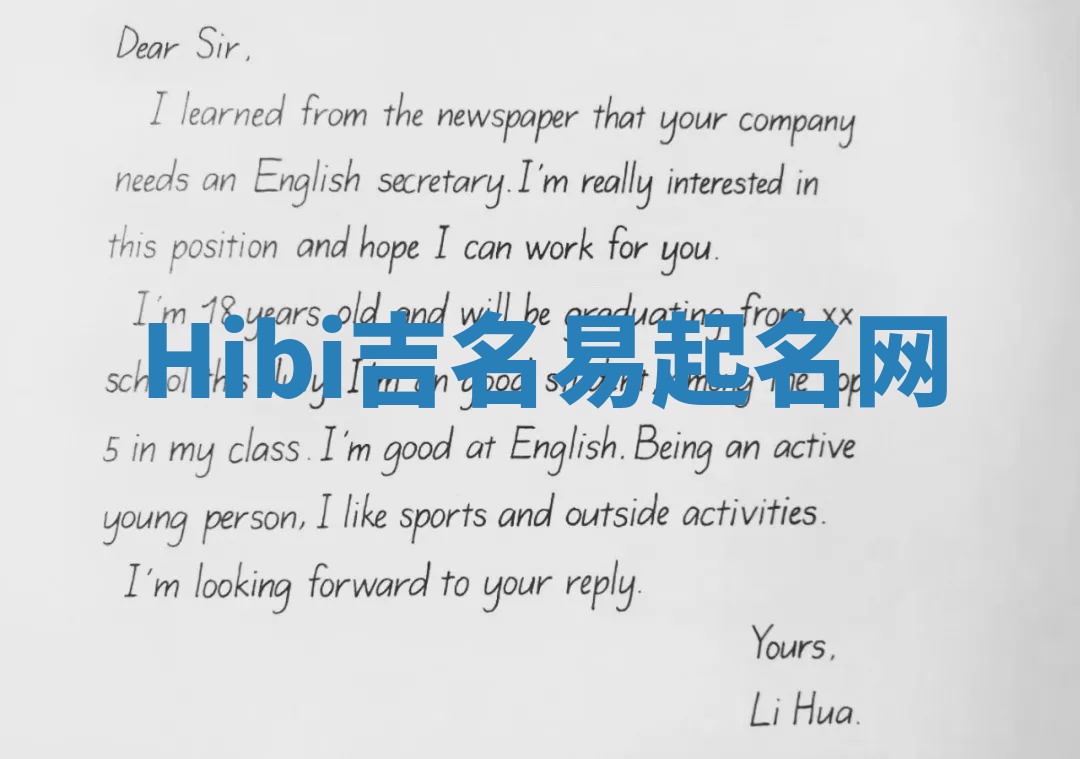 Dear Sir,
I learned from the newspaper that your company
needs an English secretary. I'm really interested in
this position and hope I can work for you.
I'm 18 years old and will be graduating from xx
Hibi吉名易起名网
school this July. I'm an good student, among the top
5 in my class. I'm good at English. Being an active
young person, I like sports and outside activities.
I'm looking forward to your reply.
Yours,
Li Hua.